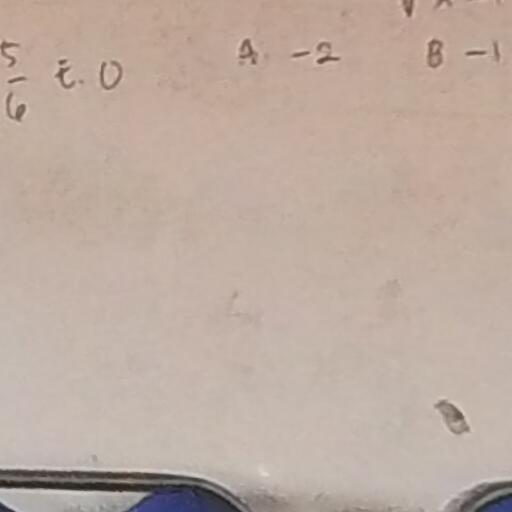 5/6 E. 0 A. -2 B -1